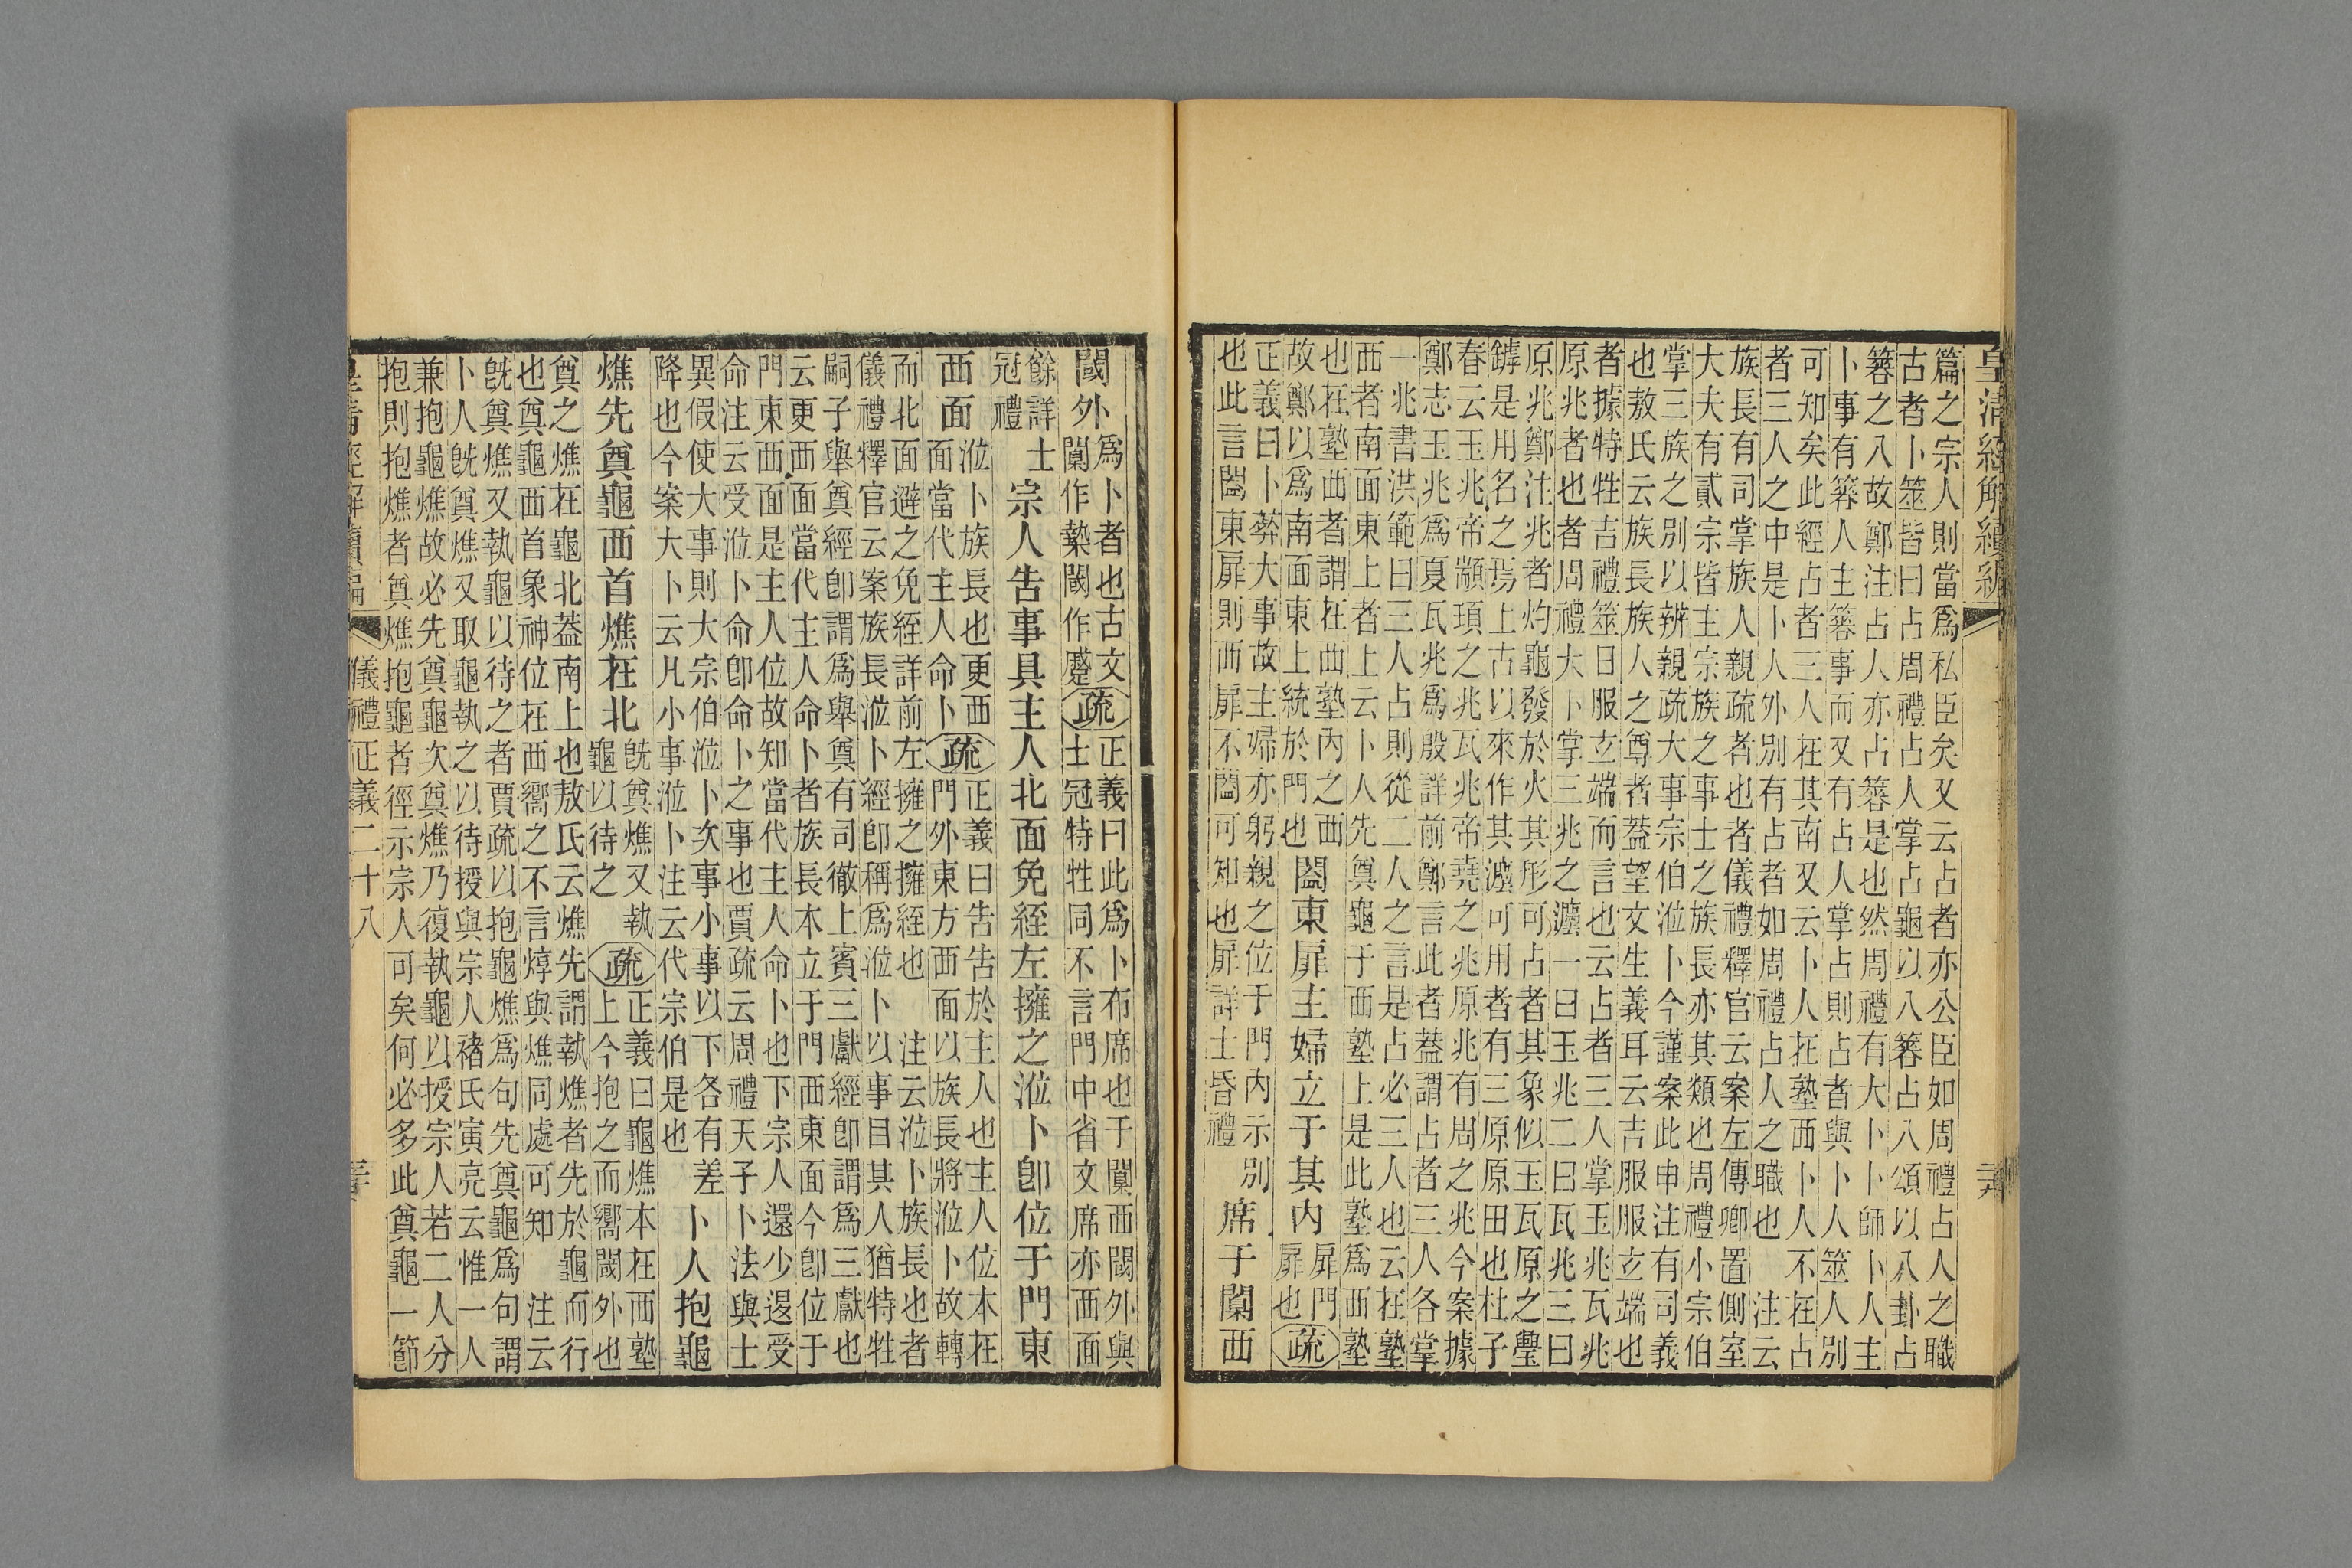 皇清經解續編
篇之宗人則當爲私臣矣又云占者亦公臣如周禮占人之職
古者卜筮皆曰占周禮占人掌占龜以八簭占八頌以八卦占
簭之八故鄭注占人亦占簭是也然周禮有大卜卜師卜人主
卜事有簭人主簭事而又有占人掌占則占者與卜人筮人別
可知矣此經占者三人在其南又云卜人在塾西卜人不在占
者三人之中是卜人外別有占者如周禮占人之職也 注云
族長有司掌族人親疏者也者儀禮釋官云案左傳卿置側室
大夫有貳宗皆主宗族之事士之族長亦其類也周禮小宗伯
掌三族之別以辨親疏大事宗伯涖卜今謹案此申注有司義
也敖氏云族長族人之尊者葢望文生義耳云吉服服玄端也
者據特牲吉禮筮日服玄端而言也云占者三人掌玉兆瓦兆
原兆者也者周禮大卜掌三兆之灋一曰玉兆二曰瓦兆三曰
原兆鄭注兆者灼龜發於火其形可占者其象似玉瓦原之璺
鏬是用名之焉上古以來作其灋可用者有三原原田也杜子
春云玉兆帝顓頊之兆瓦兆帝堯之兆原兆有周之兆今案據
鄭志玉兆爲夏瓦兆爲殷詳前鄭言此者葢謂占者三人各掌
一兆書洪範曰三人占則從二人之言是占必三人也云在塾
西者南面東上者上云卜人先奠龜于西塾上是此塾爲西塾
也在塾西者謂在西塾內之西
故鄭以爲南面東上統於門也
闔東扉主婦立于其內
扉門
扉也
疏
正義曰卜葬大事故主婦亦躬親之位于門內示別
也此言闔東扉則西扉不闔可知也扉詳士昏禮
席于闑西
閾外
爲卜者也古文
闑作槷閾作蹙
疏
正義曰此爲卜布席也于闑西閾外與
士冠特牲同不言門中省文席亦西面
餘詳士
冠禮
宗人告事具主人北面免絰左擁之涖卜卽位于門東
西面
涖卜族長也更西
面當代主人命卜
疏
正義曰告告於主人也主人位本在
門外東方西面以族長將涖卜故轉
而北面避之免絰詳前左擁之擁絰也 注云涖卜族長也者
儀禮釋官云案族長涖卜經卽稱爲涖卜以事目其人猶特牲
嗣子舉奠經卽謂爲舉奠有司徹上賓三獻經卽謂爲三獻也
云更西面當代主人命卜者族長本立于門西東面今卽位于
門東西面是主人位故知當代主人命卜也下宗人還少退受
命注云受涖卜命卽命卜之事也賈疏云周禮天子卜法與士
異假使大事則大宗伯涖卜次事小事以下各有差
降也今案大卜云凡小事涖卜注云代宗伯是也
卜人抱龜
燋先奠龜西首燋在北
旣奠燋又執
龜以待之
疏
正義曰龜燋本在西塾
上今抱之而嚮閾外也
奠之燋在龜北葢南上也敖氏云燋先謂執燋者先於龜而行
也奠龜西首象神位在西嚮之不言焞與燋同處可知 注云
旣奠燋又執龜以待之者賈疏以抱龜燋爲句先奠龜爲句謂
卜人旣奠燋又取龜執之以待授與宗人褚氏寅亮云惟一人
兼抱龜燋故必先奠龜次奠燋乃復執龜以授宗人若二人分
抱則抱燋者奠燋抱龜者徑示宗人可矣何必多此奠龜一節
儀禮正義二十八